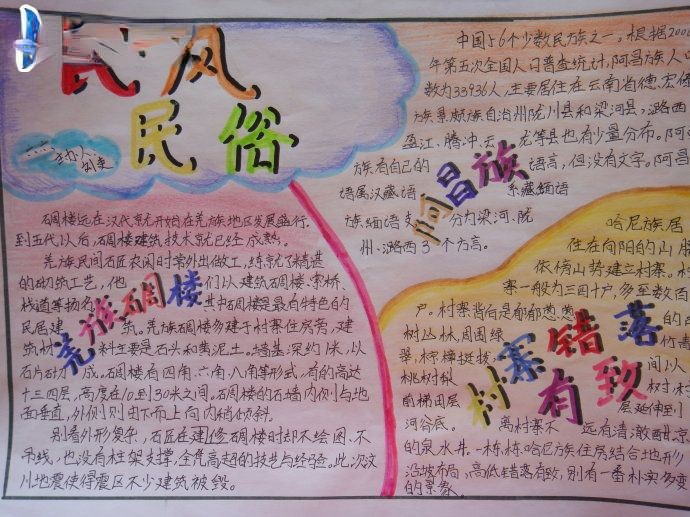 民风
民俗
碉楼远在汉代就开始在羌族地区发展盛行,
到五代以后,碉楼建筑技术就已经成熟。
羌族民间石匠农闲时常外出做工,练就了精湛
的砌筑工艺,他们以建筑碉楼、索桥、
栈道等扬名,其中碉楼是最有特色的
民居建筑。羌族碉楼多建于村寨住房旁,建
筑材料主要是石头和黄泥土。墙基深约1米,以
石片砌成。碉楼有四角、六角、八角等形式,有的高达
十三四层,高度在10到30米之间。碉楼的石墙内侧与地
面垂直,外侧则由下而上向内稍倾斜。
别看外形复杂,石匠在建修碉楼时却不绘图、不
吊线,也没有柱架支撑,全凭高超的技艺与经验。此次汶
川地震使得震区不少建筑被毁。
羌族碉楼
中国56个少数民族之一。根据200
年第五次全国人口普查统计,阿昌族人口
数为33936人,主要居住在云南省德宏傣
族景颇族自治州陇川县和梁河县,潞西
盈江、腾冲、云龙等县也有少量分布。阿
族有自己的语言,但没有文字。阿昌
语属汉藏语系藏缅语
族缅语支,分为梁河、陇
川、潞西3个方言。
阿昌族
哈尼族居
住在向阳的山
依傍山势建立村寨。村
寨一般为三四十户,多至数百
户。村寨背后是郁郁葱葱的
树丛林,周围绿竹青
翠,棕榈挺拔,间以
桃树梨树,村
前梯田层层延伸到
河谷底。离村寨不远有清澈甘凉
的泉水井。一栋栋哈尼族住房结合地形,
沿坡布局,高低错落有致,别有一番朴实多变
的景象。
村寨错落
有致